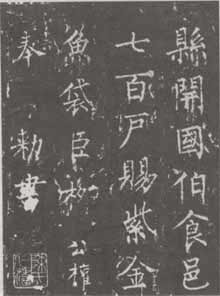 縣開國伯食邑
七百戶賜紫金
魚袋臣柳公權
奉敕書